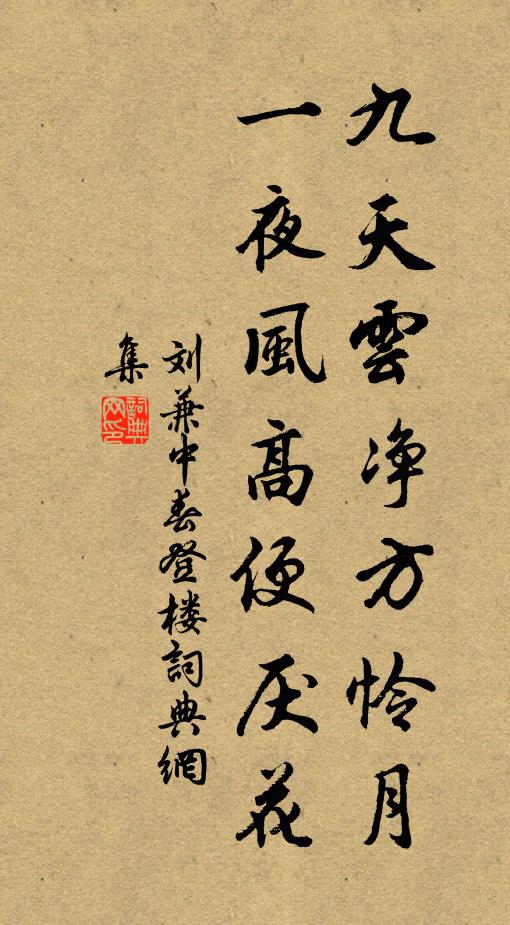 九天雲净方怜月
一夜風高便厌花
刘兼中春登楼詞典網
集
詞典网印